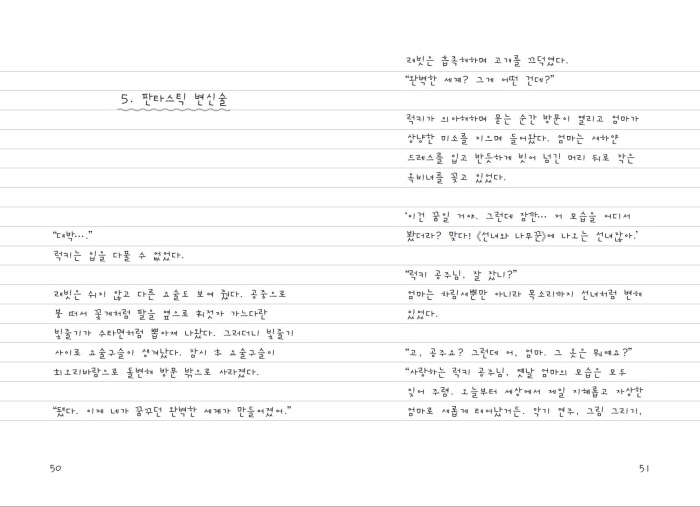 5. 판타스틱 변신술
“대박….”
럭키는 입을 다물 수 없었다.
래빗은 쉬지 않고 다른 요술도 보여 줬다. 공중으로
붕 떠서 꽃게처럼 팔을 옆으로 휘젓자 가느다란
빛줄기가 수타면처럼 뽑아져 나왔다. 그러더니 빛줄기
사이로 요술구슬이 생겨났다. 잠시 후 요술구슬이
회오리바람으로 돌변해 방문 밖으로 사라졌다.
“됐다. 이제 네가 꿈꾸던 완벽한 세계가 만들어졌어.”
50
래빗은 흡족해하며 고개를 끄덕였다.
“완벽한 세계? 그게 어떤 건데?”
럭키가 의아해하며 묻는 순간 방문이 열리고 엄마가
상냥한 미소를 지으며 들어왔다. 엄마는 새하얀
드레스를 입고 반듯하게 빗어 넘긴 머리 뒤로 작은
옥비녀를 꽂고 있었다.
‘이건 꿈일 거야. 그런데 잠깐… 저 모습을 어디서
봤더라? 맞다! 《선녀와 나무꾼》에 나오는 선녀잖아.’
“럭키 공주님, 잘 잤니?”
엄마는 차림새뿐만 아니라 목소리까지 선녀처럼 변해
있었다.
“고, 공주요? 그런데 어, 엄마. 그 옷은 뭐예요?”
“사랑하는 럭키 공주님, 옛날 엄마의 모습은 모두
잊어 주렴. 오늘부터 세상에서 제일 지혜롭고 자상한
엄마로 새롭게 태어났거든. 악기 연주, 그림 그리기,
51